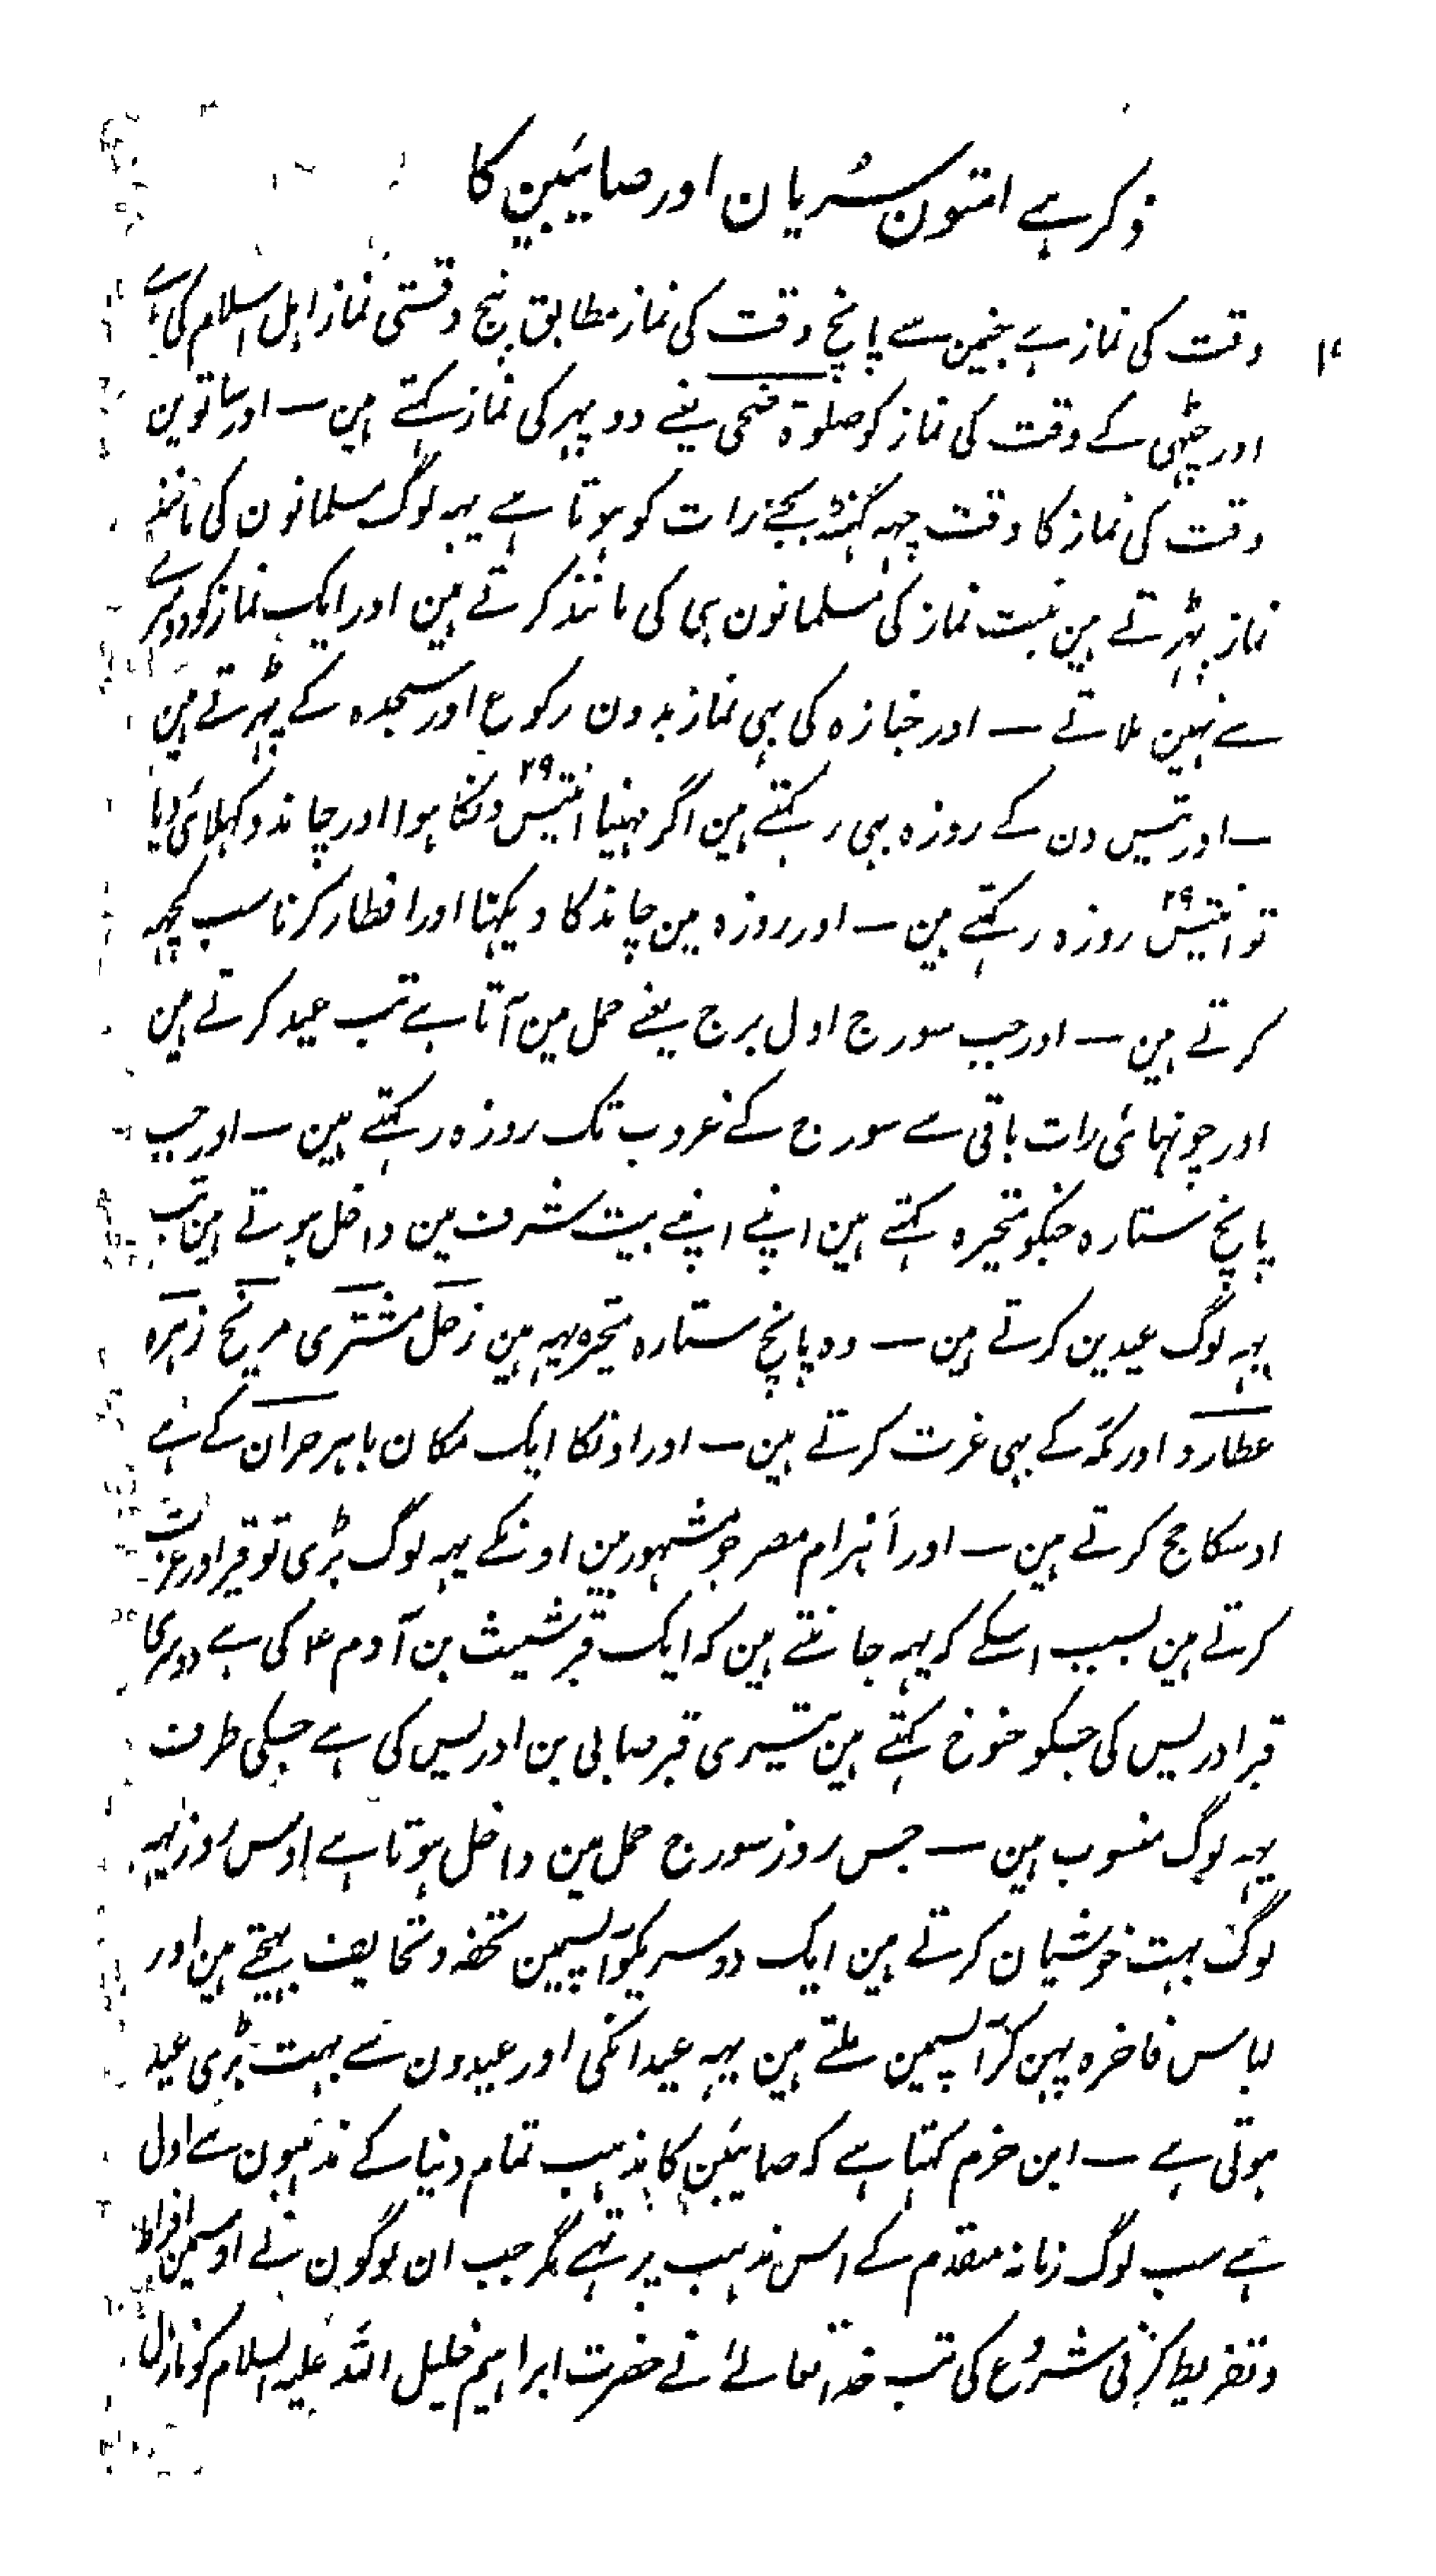 ذکر ہے امتون سُریان اور صابیئین کا
وقت کی نماز ہے جنمین سے پانچ وقت کی نماز مطابق پنج وقتی نماز اہل اسلام کی ہے
اور چٹھی کے وقت کی نماز کو صلوٰۃ ضحی یعنے دوپہر کی نماز کہتے ہین — اور ساتوین
وقت کی نماز کا وقت چہہ گہنٹہ بجے رات کو ہوتا ہے یہہ لوگ مسلمانون کی مانند
نماز پڑہتے ہین نیت نماز کی مسلمانون ہی کی مانند کرتے ہین اور ایک نماز کو دوسرے
سے نہین ملاتے — اور جنازہ کی بہی نماز بدون رکوع اور سجدہ کے پڑہتے ہین
— اور تیس دن کے روزہ بہی رکہتے ہین اگر مہینا انتیس ۲۹ دنکا ہوا اور چاند دکہلائی دیا
تو انتیس ۲۹ روزہ رکہتے ہین — اور روزہ مین چاند کا دیکہنا اور افطار کرنا سب کچہہ
کرتے ہین — اور جب سورج اول برج یعنے حمل مین آتا ہے تب عید کرتے ہین
اور چوتہائی رات باقی سے سورج کے غروب تک روزہ رکہتے ہین — اور جب
پانچ ستارہ جنکو متحیرہ کہتے ہین اپنے اپنے بیت شرف مین داخل ہوتے ہین تب
یہہ لوگ عیدین کرتے ہین — وہ پانچ ستارہ متحیرہ یہہ ہین زحل مشتری مریخ زہرہ
عطارد اور مکہ کے بہی عزت کرتے ہین — اور اونکا ایک مکان باہر حران کے ہے
اوسکا حج کرتے ہین — اور اہرام مصر جو مشہور ہین اونکے یہہ لوگ بڑی توقیر اور عزت
کرتے ہین بسبب اسکے کہ یہہ جانتے ہین کہ ایک قبر شیث بن آدم ۴ کی ہے دوسری
قبر ادریس کی جسکو خنوخ کہتے ہین تیسری قبر صابی بن ادریس کی ہے جسکی طرف
یہہ لوگ منسوب ہین — جس روز سورج حمل مین داخل ہوتا ہے اوس روز یہہ
لوگ بہت خوشیان کرتے ہین ایک دوسریکو آپسمین تحفہ و تحایف بہیجتے ہین اور
لباس فاخرہ پہن کر آپسمین ملتے ہین یہہ عید انکی اور عیدون سے بہت بڑی عید
ہوتی ہے — ابن حزم کہتا ہے کہ صابیئین کا مذہب تمام دنیا کے مذہبون سے اول
ہے سب لوگ زمانہ متقدم کے اس مذہب پر تہے مگر جب ان لوگون نے اوسمین افراط
و تفریط کرنی شروع کی تب خدا تعالےٰ نے حضرت ابراہیم خلیل اللہ علیہ السلام کو نازل